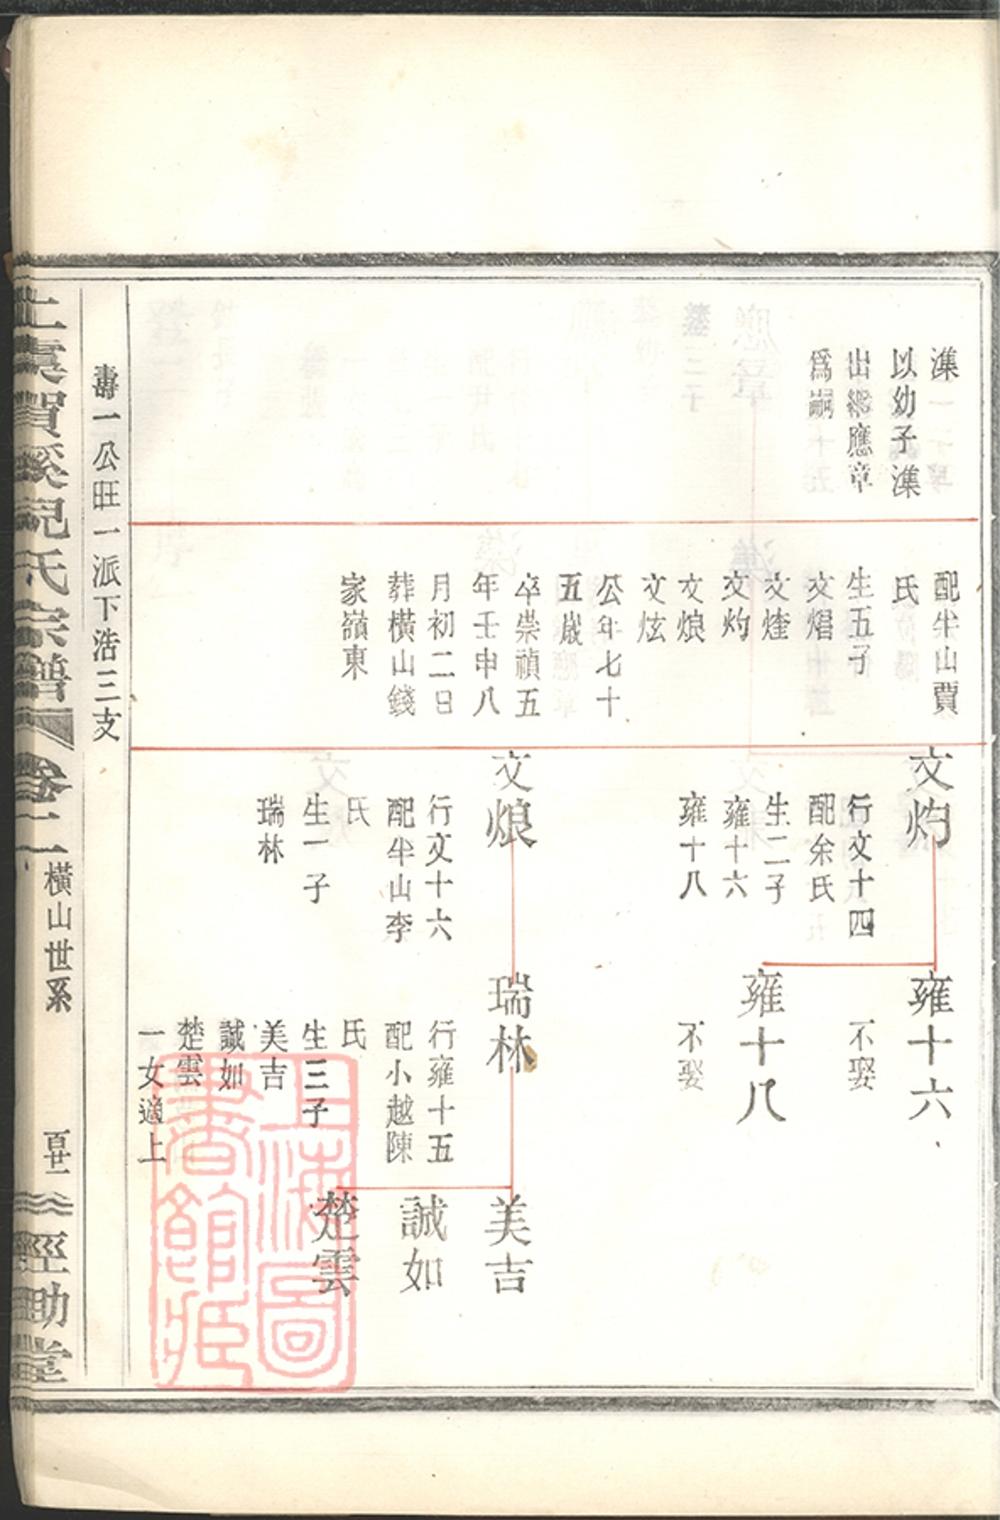 漅
以幼子漅
出繼應章
爲嗣
配半山賈
氏
生五子
文焻
文煃
文灼
文烺
文炫
公年七十
五歲
卒崇禎五
年壬申八
月初二日
葬橫山錢
家嶺東
文灼
行文十四
配余氏
生二子
雍十六
雍十八
文烺
行文十六
配半山李
氏
生一子
瑞林
雍十六
不娶
雍十八
不娶
瑞林
行雍十五
配小越陳
氏
生三子
美吉
誠如
楚雲
一女適上
美吉
誠如
楚雲
壽一公旺一派下浩三支
上虞賀溪倪氏宗譜
卷二
橫山世系
百廿一
經助堂
上海圖
書館藏